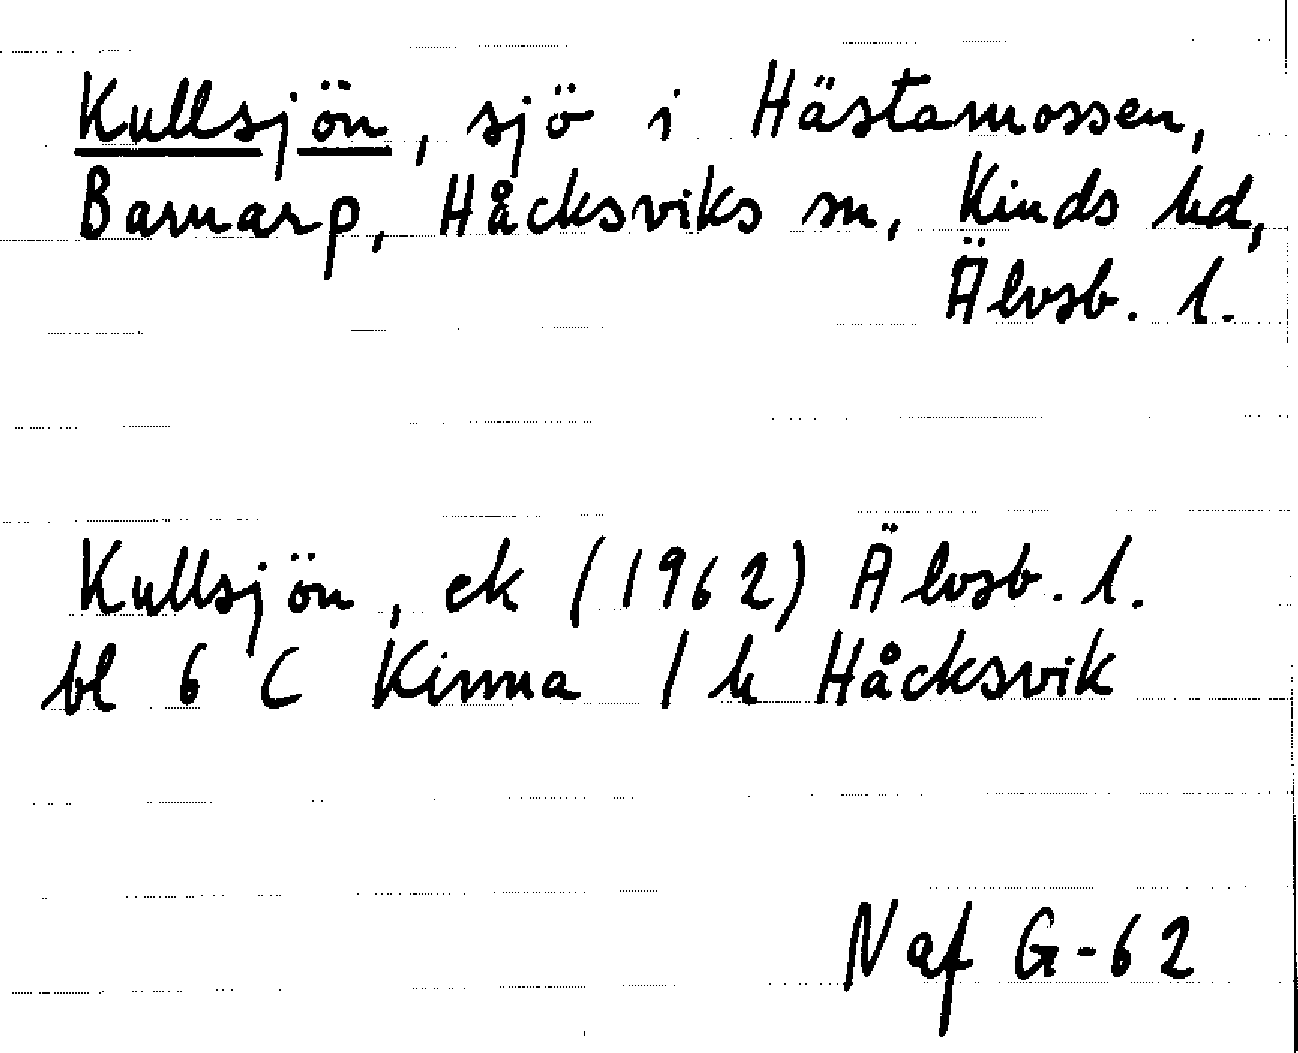 Kullsjön, sjö i Hästamossen,
Barnarp, Håcksviks sn, Kinds hd,
Älvsb. l.
Kullsjön, ek (1962) Älvsb. l.
bl 6 C Kinna / h Håcksvik
Naf G-62